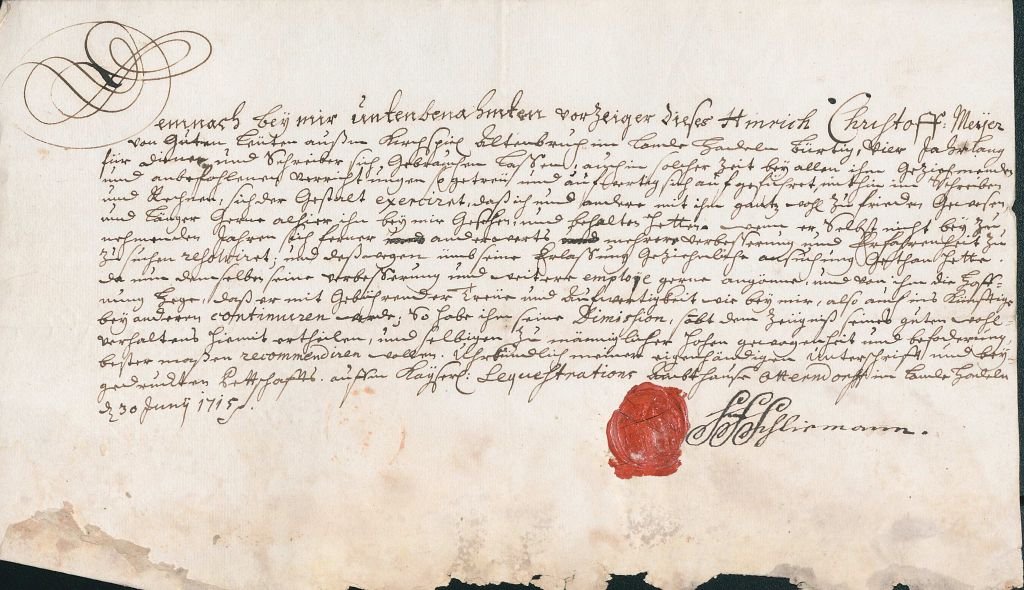 Demnach bey mir untenbenahmten vorzeiger dieses Hinrich Christoff: Meijer
von Guten Leuten außm Kirchspiel Altenbruch im Lande Hadeln bürtig, Vier Jahr lang
für diener und Schreiber sich Gebrauchen Lassen, auch in solcher Zeit bey allen ihm Geziehmenden
und anbefohlenen verrichtungen so getreü und aufwertig sich aufgeführet, mithin im Schreiben
und Rechnen, sich der Gestalt exerciret, daß ich und andere mit ihm gantz wohl zu frieden Gewesen,
und Länger Gerne alhier ihn bey mir Gesehen und behalten hette. wenn er Selbst nicht bey zu
nehmenden Jahren sich ferner und anderwerts und mehrere verbesserung und Erfahrenheit zu
zu suchen resolviret, und deßwegen umb seine Erlassung Geziehmliche ansuchung Gethan hette.
da nun demselben seine verbesserung und weitere employe gerne angönne, und von ihm die Hoff-
nung hege, daß er mit Gebührender Treüe und Aufwertigkeit wie bey mir, also auch ins Künfftige
bey anderen continuiren werde; So habe ihm seine Dimission, sabt dem Zeigniß seines guten wohl
verhaltens hiemit ertheilen, und selbigen zu männiglicher hohen gewogenheit und beforderung
bester maßen recommendiren wollen. Uhrkündlich meiner eigenhändigen Unterschrifft und bey-
gedruckten Pettschaffts. aufm Kayserl: Sequestrations Ambthause Otterndorff im Lande Hadeln
d 30 Junij 1715.
Schliemann.